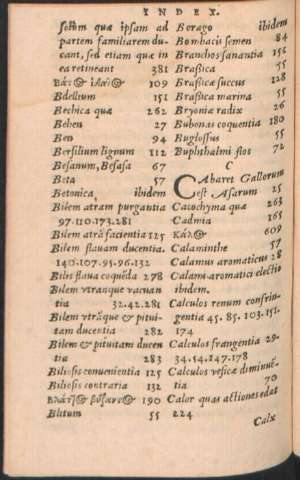 INDEX.
solùm quæ ipsam ad
partem familiarem du-
cant, sed etiam quæ in
ea retineant 381
109
Bdellium 151
Bechica quæ 262
Behen 27
Ben 94
Bersilium lignum 112
Besanum, Besasa 67
Beta 57
Betonica, ibidem
Bilem atram purgantia
97.110.173.281
Bilem atrã facientia 125
Bilem flauam ducentia.
140.107.95.96.132
Bilis flaua coquẽda 278
Bilem vtranque vacuan
tia 32.42.281
Bilem vtrãque & pitui-
tam ducentia 282
Bilem & pituitam ducen
tia 283
Biliosis conuenientia 125
Biliosis contraria 132
190
Blitum 55
Borago ibidem
Bombacis semen 84
Branchos sanantia 156
Brassica 55
Brassicæ succus 128
Brassica marina 55
Bryoniæ radix 26
Bubonas coquentia 180
Buglossus 55
Buphthalmi flos 72
C
CAbaret Gallorum
est Asarum 25
Cacochyma quæ 263
Cadmia 165
609
Calaminthe 57
Calamus aromaticus 28
Calami aromatici electio
ibidem.
Calculos renum confrin-
gentia 45. 85. 103. 151.
174
Calculos frangentia 29.
34.54.147.178
Calculos vesicæ diminuẽ-
tia 70
Calor quas actiones edat
224
Calx